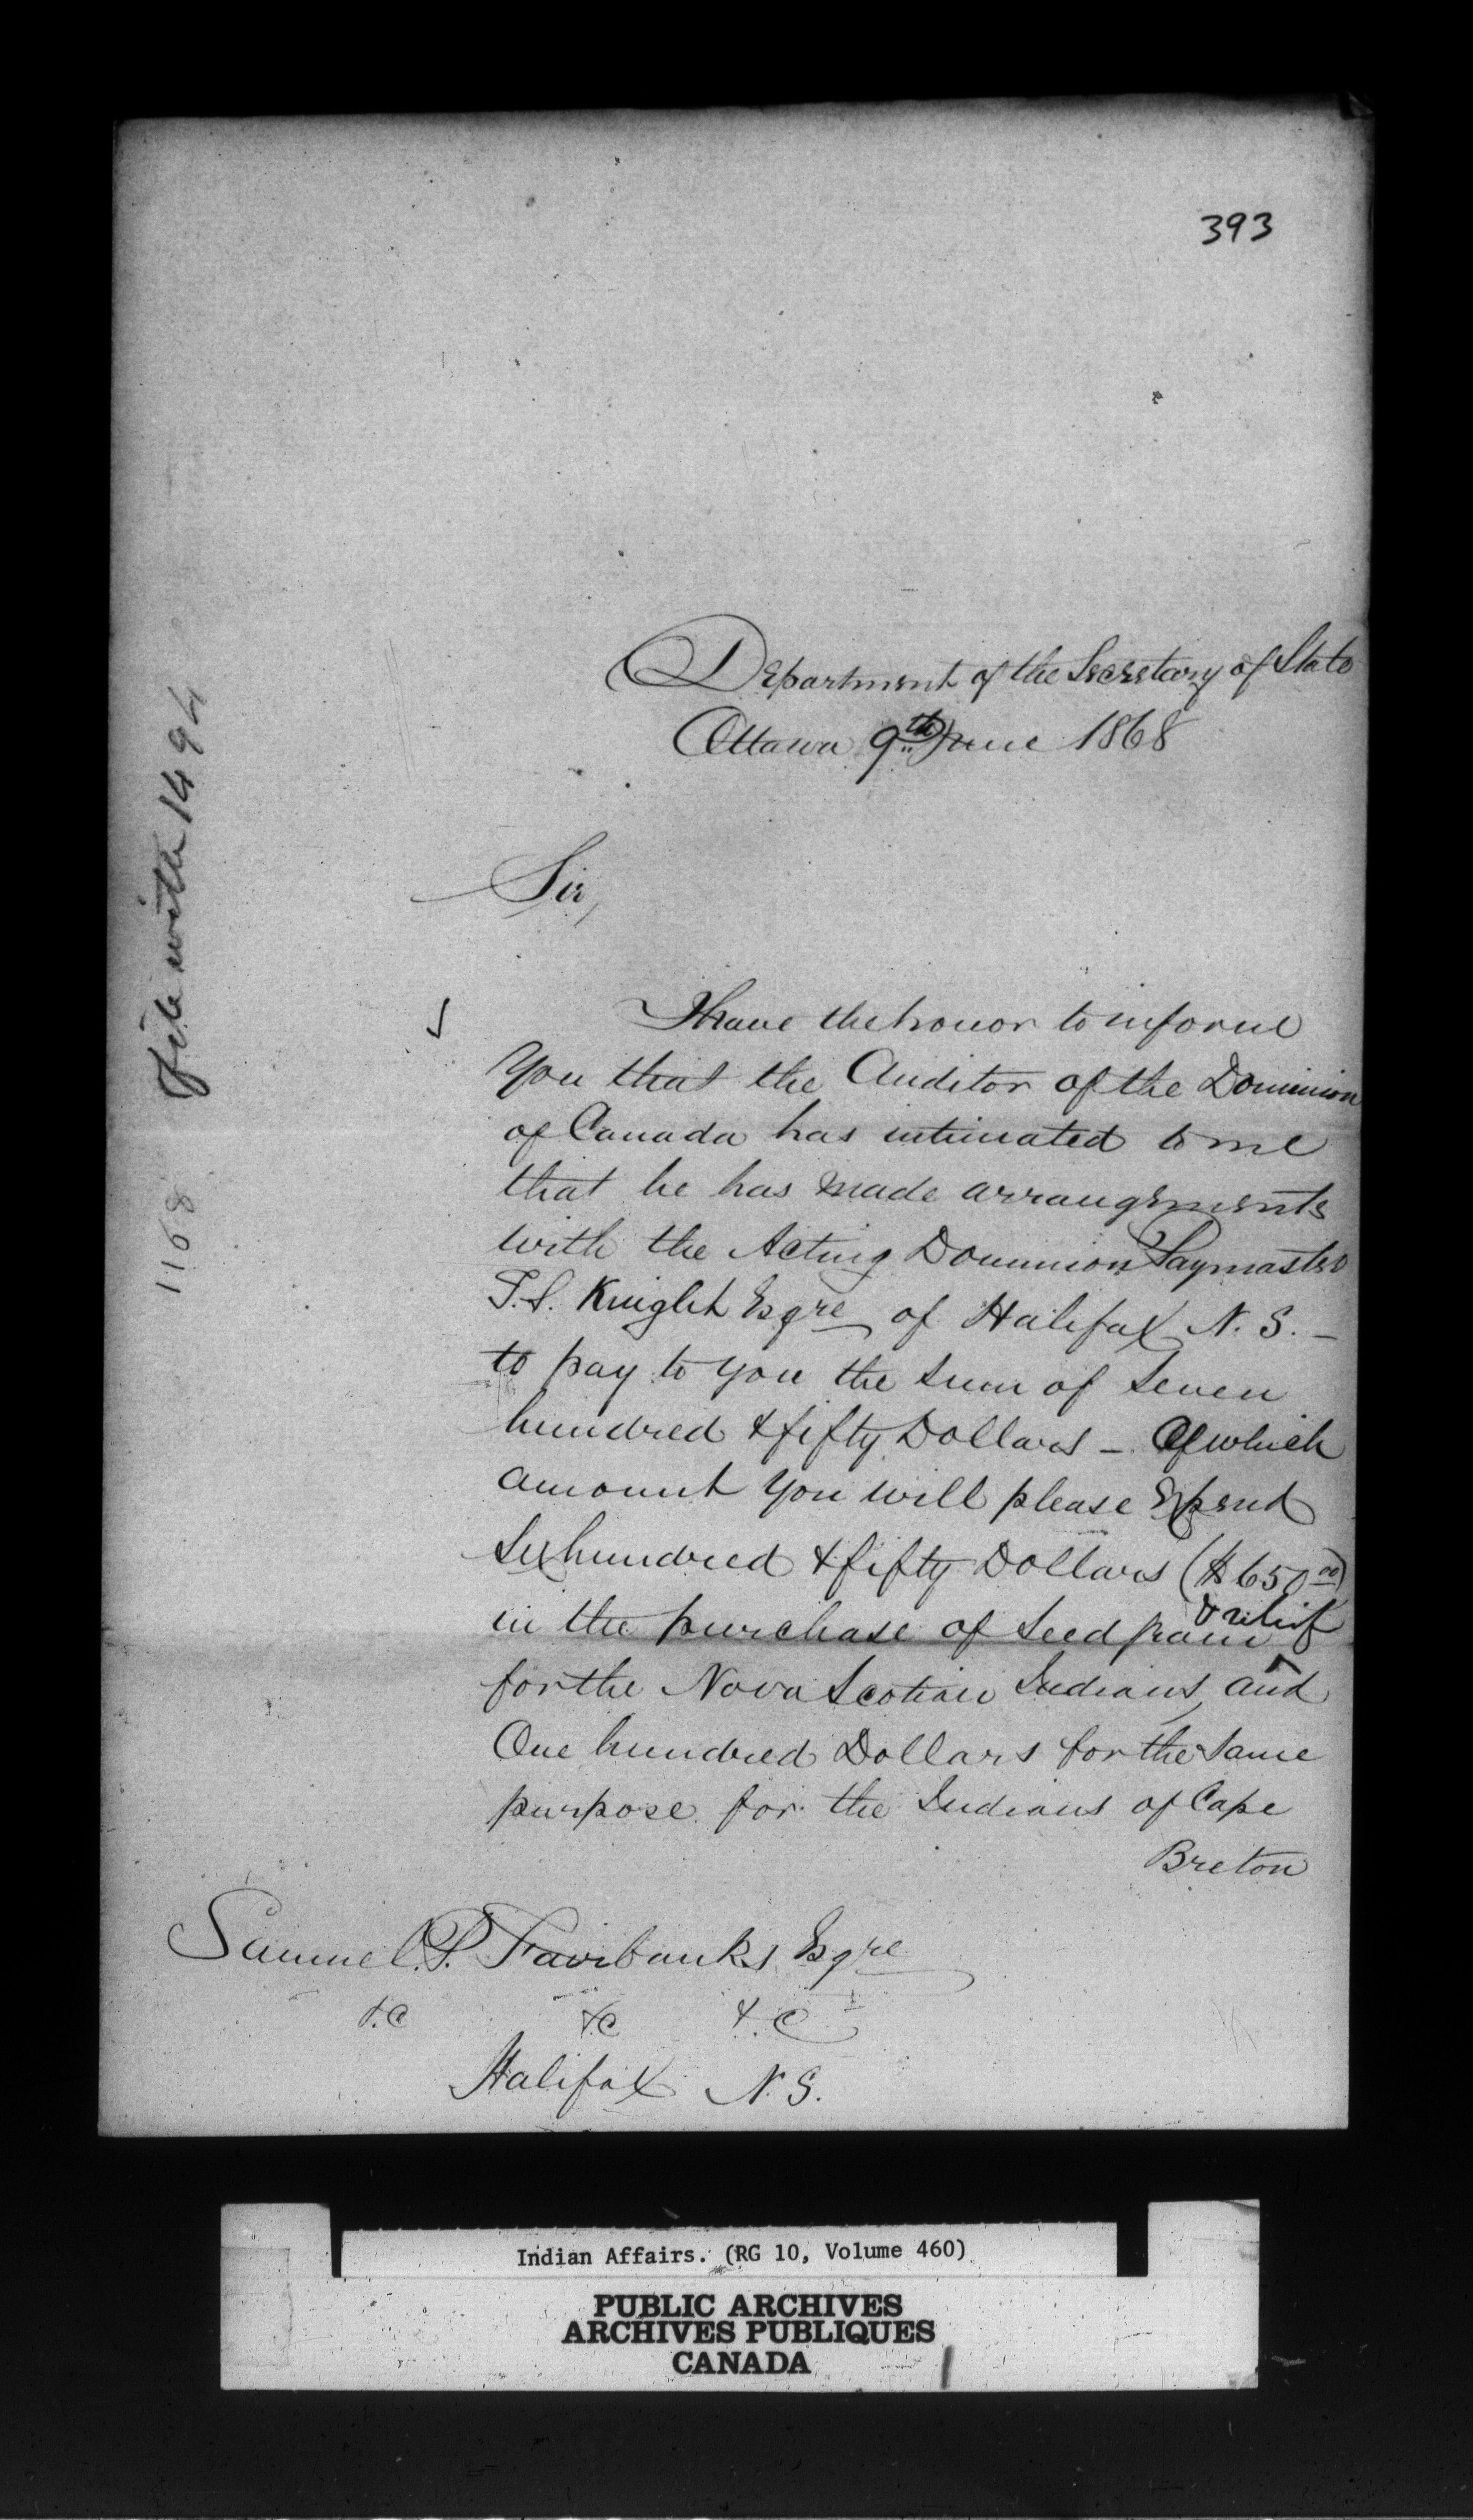 393
Department of the Secretary of State
Ottawa 9th June 1868
File with 1494
1168
Sir,
I have the honor to inform
You that the Auditor of the Dominion
of Canada has intimated to me
that he has made arrangements
with the Acting Dominion Paymaster
T.S. Knight Esqre of Halifax N.S. –
to pay to you the sum of Seven
hundred & fifty Dollars – Of which
amount you will please Expend
Six hundred & fifty Dollars ($650 00)
& relief
in the purchase of Seed grain
for the Nova Scotian Indians, and
One hundred Dollars for the same
purpose for the Indians of Cape
Breton
Samuel P. Fairbanks Esqre
&.c &c &.c
Halifax N.S.
Indian Affairs. (RG 10, Volume 460)
PUBLIC ARCHIVES
ARCHIVES PUBLIQUES
CANADA